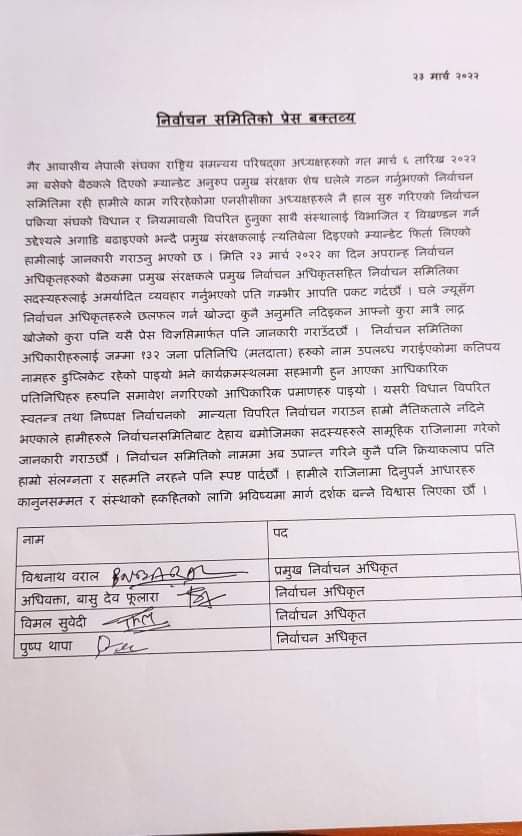 २३ मार्च २०२२
निर्वाचन समितिको प्रेस बक्तव्य
गैर आवासीय नेपाली संघका राष्ट्रिय समन्वय परिषद्का अध्यक्षहरुको गत मार्च ६ तारिख २०२२
मा बसेको बैठकले दिएको म्यान्डेट अनुरुप प्रमुख संरक्षक शेष घलेले गठन गर्नुभएको निर्वाचन
समितिमा रही हामीले काम गरिरहेकोमा एनसीसीका अध्यक्षहरुले नै हाल सुरु गरिएको निर्वाचन
प्रक्रिया संघको विधान र नियमावली विपरित हुनुका साथै संस्थालाई विभाजित र विखण्डन गर्न
उद्देश्यले अगाडि बढाइएको भन्दै प्रमुख संरक्षकलाई त्यतिबेला दिइएको म्यान्डेट फिर्ता लिएको
हामीलाई जानकारी गराउनु भएको छ । मिति २३ मार्च २०२२ का दिन अपरान्ह निर्वाचन
अधिकृतहरुको बैठकमा प्रमुख संरक्षकले प्रमुख निर्वाचन अधिकृतसहित निर्वाचन समितिका
सदस्यहरुलाई अमर्यादित व्यवहार गर्नुभएको प्रति गम्भीर आपति प्रकट गर्दछौं । घले ज्यूसँग
निर्वाचन अधिकृतहरुले छलफल गर्न खोज्दा कुनै अनुमति नदिइकन आफ्नो कुरा मात्रै लाद्न
खोजेको कुरा पनि यसै प्रेस विज्ञप्तिमार्फत पनि जानकारी गराउँदछौं । निर्वाचन समितिका
अधिकारीहरुलाई जम्मा १३२ जना प्रतिनिधि (मतदाता) हरुको नाम उपलब्ध गराईएकोमा कतिपय
नामहरु डुप्लिकेट रहेको पाइयो भने कार्यक्रमस्थलमा सहभागी हुन आएका आधिकारिक
प्रतिनिधिहरु हरुपनि समावेश नगरिएको आधिकारिक प्रमाणहरु पाइयो । यसरी विधान विपरित
स्वतन्त्र तथा निष्पक्ष निर्वाचनको मान्यता विपरित निर्वाचन गराउन हाम्रो नैतिकताले नदिने
भएकाले हामीहरुले निर्वाचनसमितिबाट देहाय बमोजिमका सदस्यहरुले सामूहिक राजिनामा गरेको
जानकारी गराउछौं । निर्वाचन समितिको नाममा अब उप्रान्त गरिने कुनै पनि क्रियाकलाप प्रति
हाम्रो संलग्नता र सहमति नरहने पनि स्पष्ट पार्दछौं । हामीले राजिनामा दिनुपर्ने आधारहरु
कानुनसम्मत र संस्थाको हकहितको लागि भविष्यमा मार्ग दर्शक बन्ने विश्वास लिएका छौं ।
नाम पद
विश्वनाथ वराल BNBARAL प्रमुख निर्वाचन अधिकृत
अधिवक्ता, बासु देव फूंलारा निर्वाचन अधिकृत
विमल सुवेदी निर्वाचन अधिकृत
पुष्प थापा निर्वाचन अधिकृत